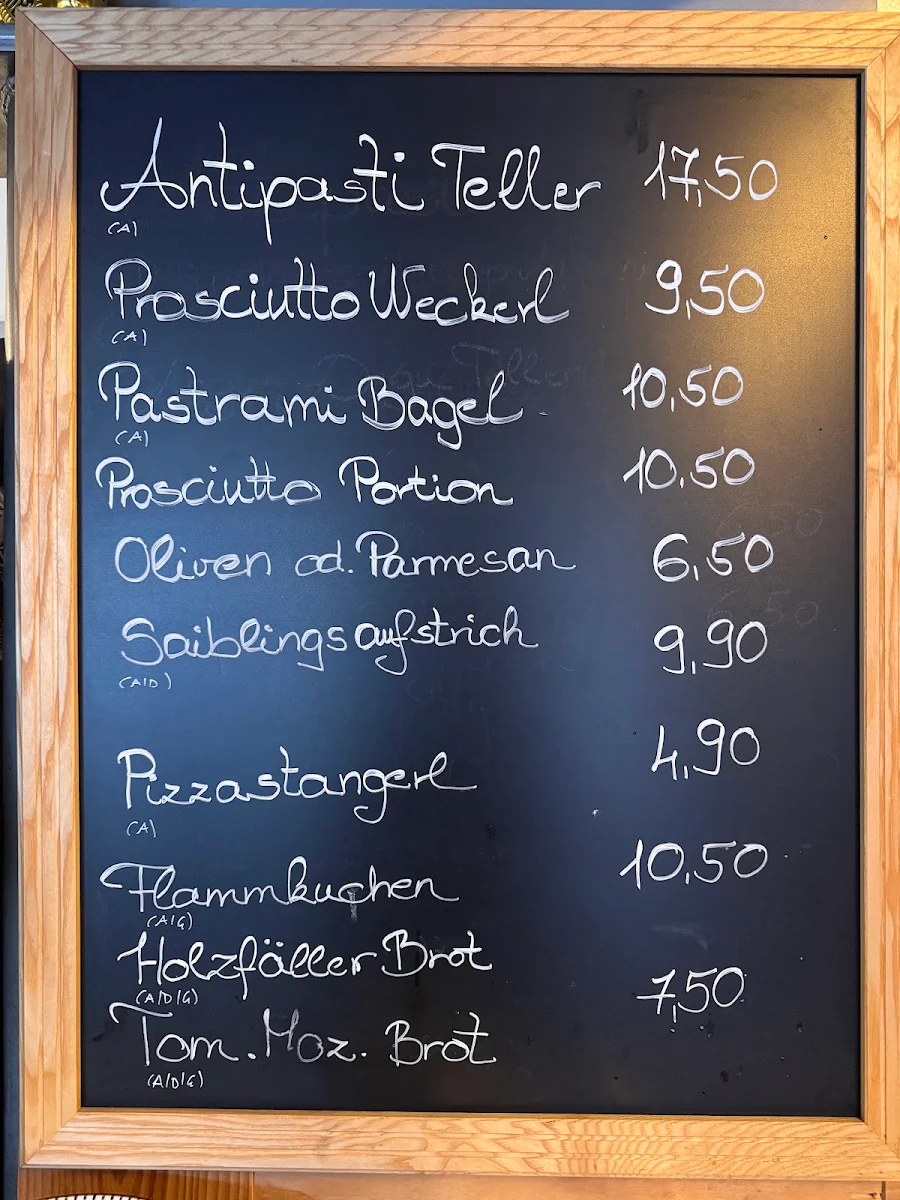 Antipasti Teller 17,50
(A)
Prosciutto Weckerl 9,50
(A)
Pastrami Bagel 10,50
(A)
Prosciutto Portion 10,50
Oliven od. Parmesan 6,50
Saiblingsaufstrich 9,90
(A|D)
Pizzastangerl 4,90
(A)
Flammkuchen 10,50
(A|G)
Holzfäller Brot
(A|D|G)
7,50
Tom. Moz. Brot
(A|D|G)